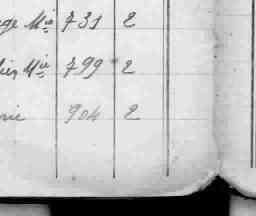 ge Mie 731 2
ier Mie 799 2
rie 904 2